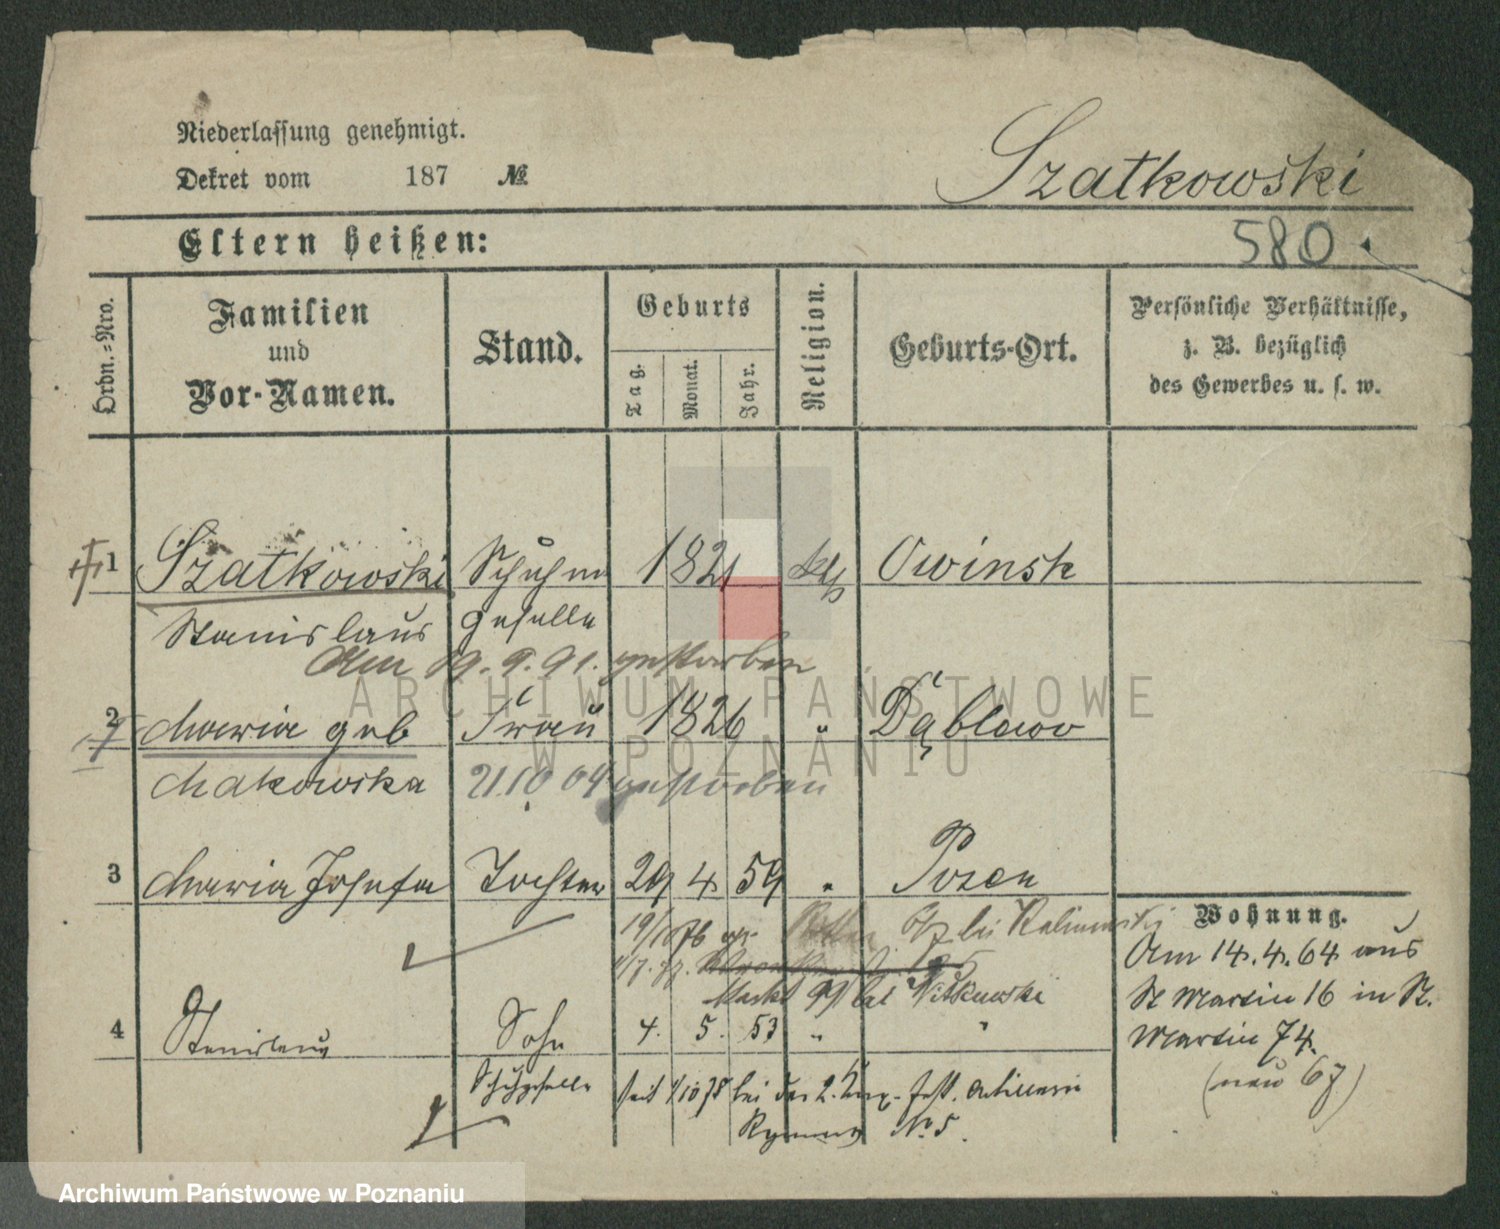 Niederlassung genehmigt.
Dekret vom 187 №
Szatkowski
Eltern heißen:
580
Ordn.-Nro.
Familien
und
Vor-Namen.
Stand.
Geburts
Tag.
Monat.
Jahr.
Religion.
Geburts-Ort.
Persönliche Verhältnisse,
z. B. bezüglich
des Gewerbes u. s. w.
1 Szatkowski Schuhm 1821 kth Owinsk
Stanislaus geselle
Am 19.9.91. gestorben
2 Maria geb Frau 1826 " Dąblowo
Makowska 21.10 04 gestorben
3 Maria Josefa Tochter 29 4 59 " Posen
Wohnung.
bei Kalinowski
Am 14.4.64 aus
Markt 99 bei Witkowski
St Martin 16 in St.
4 Stanislaus Sohn 4. 5. 53 " "
Martin 74.
(neu 67)
Schuhgeselle seit 1/10 78 bei der 2. Fest. Artillerie
No 5.
ARCHIWUM PAŃSTWOWE
W POZNANIU
Archiwum Państwowe w Poznaniu